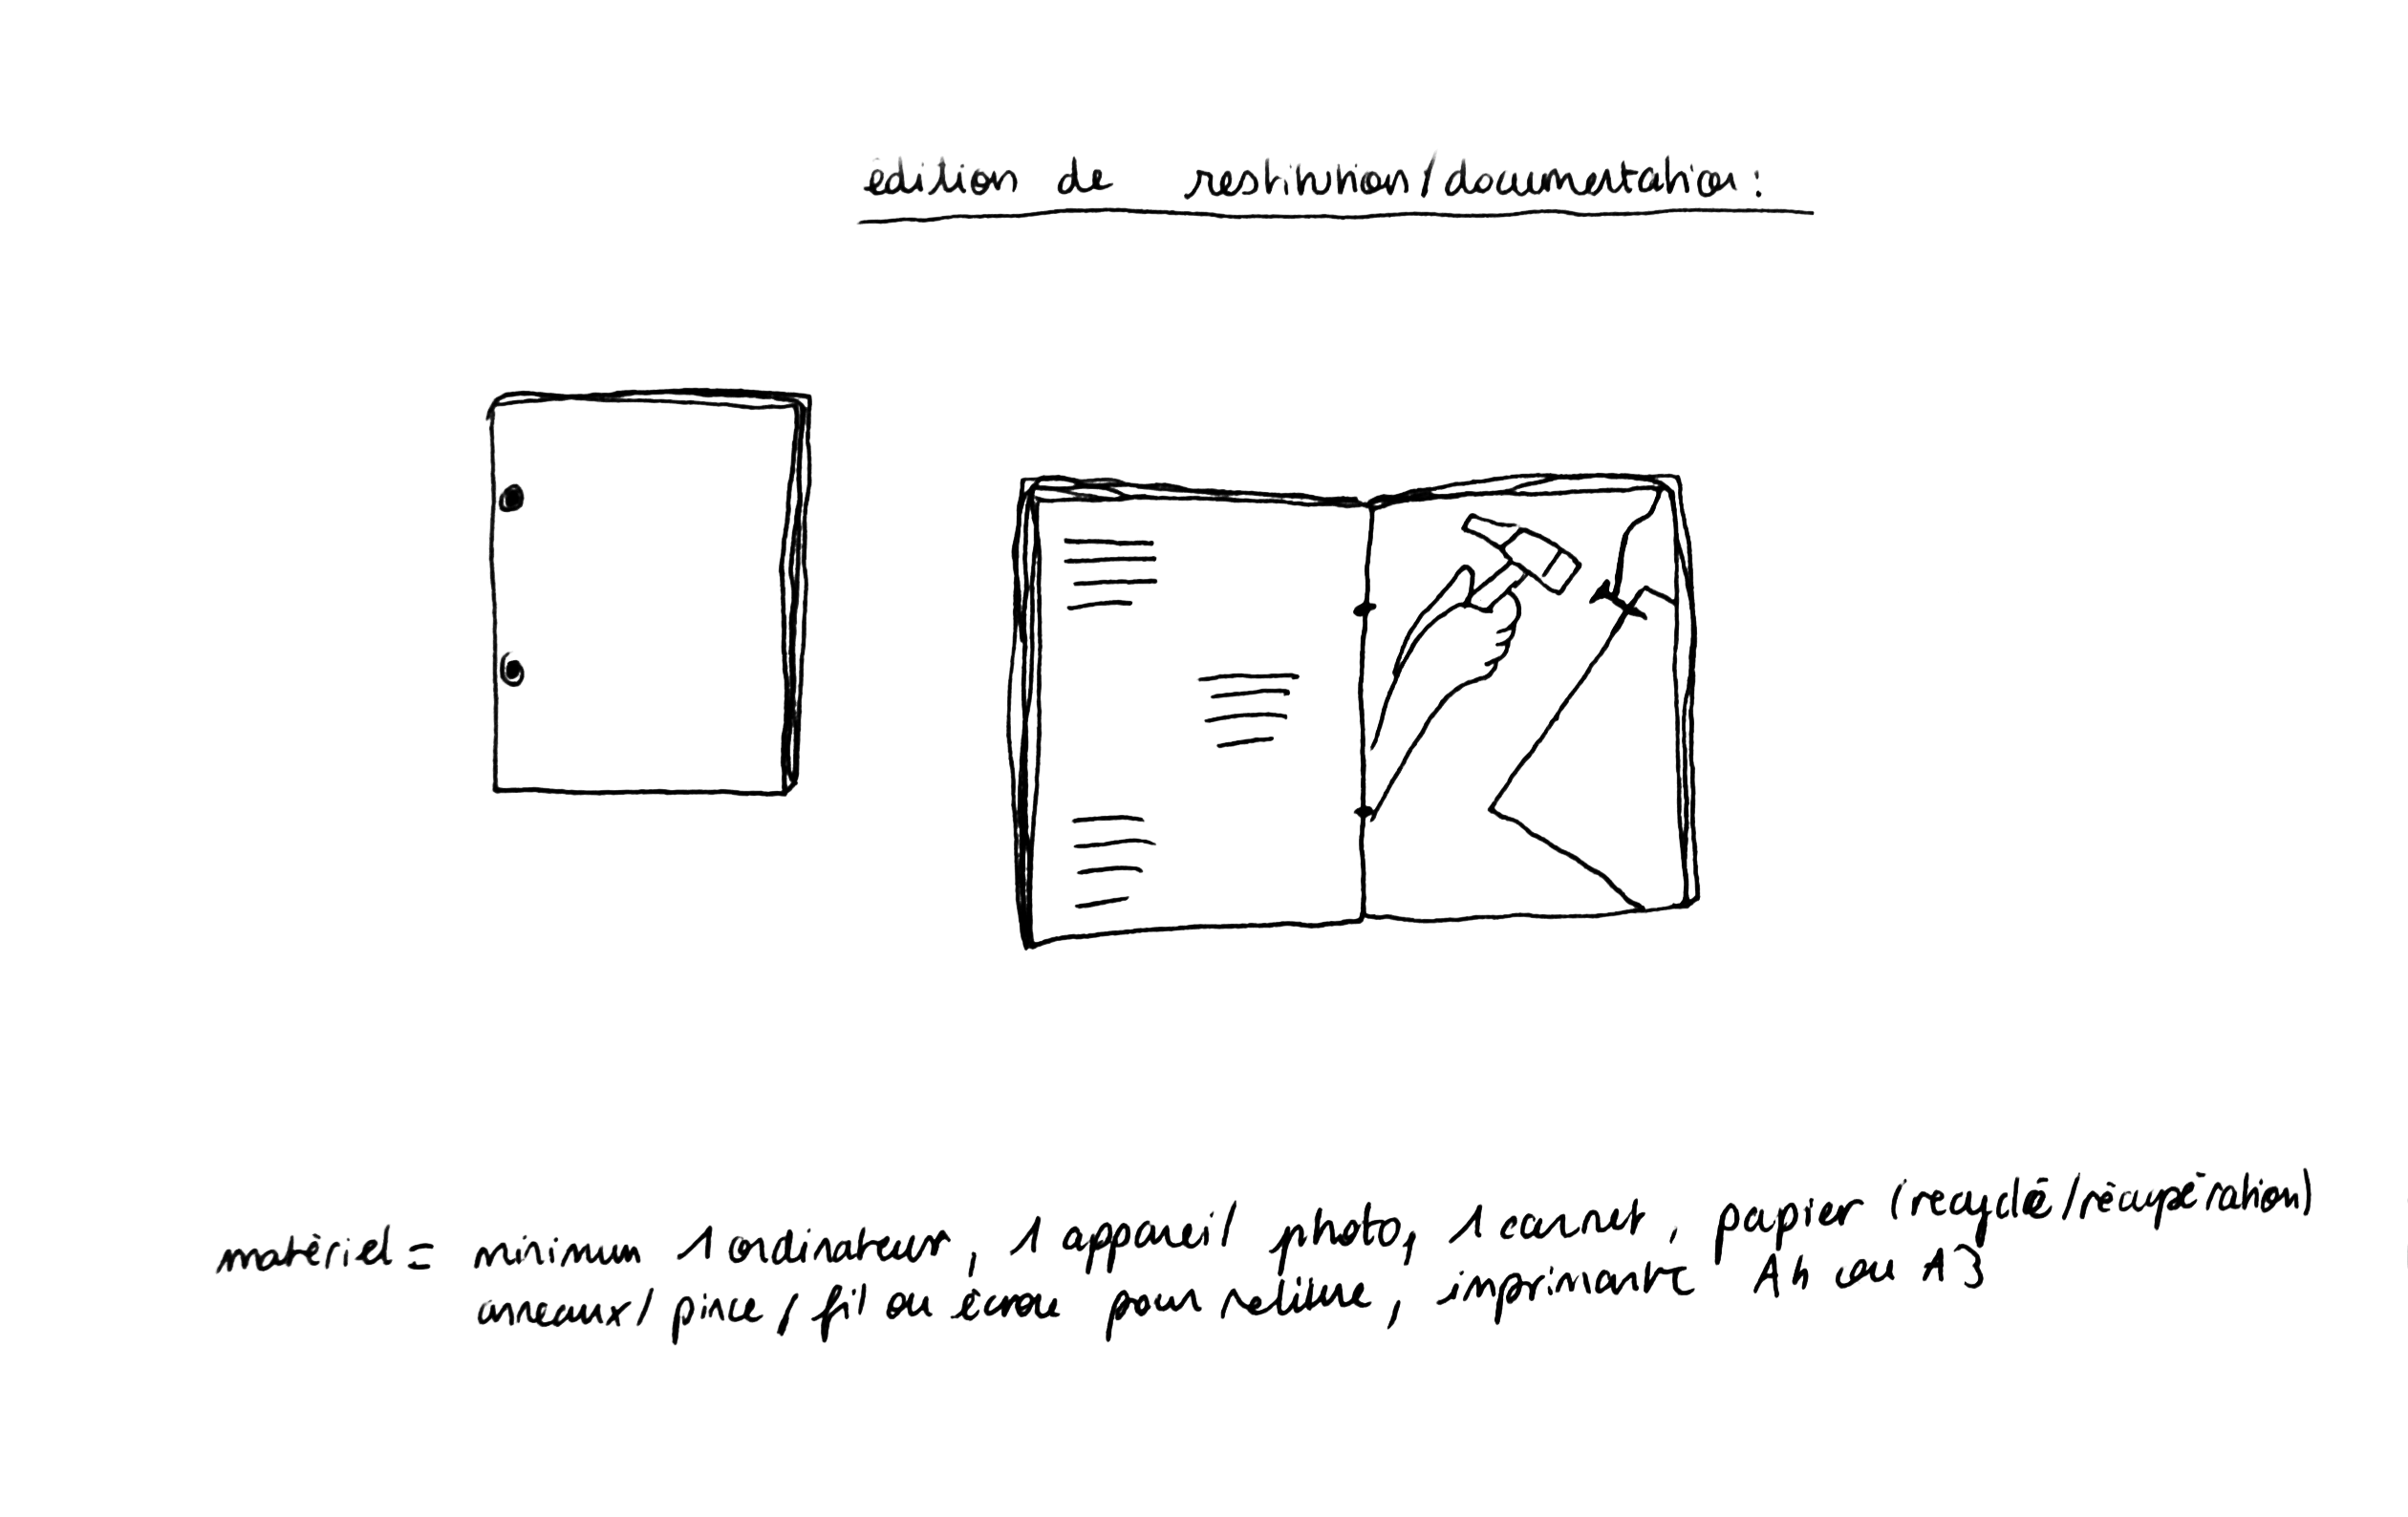 édition de restitution/documentation:
matériel = minimum 1 ordinateur, 1 appareil photo, 1 carnet, papier (recyclé/récupération)
anneaux/pince/fil ou écrou pour reliure, imprimante A4 ou A3